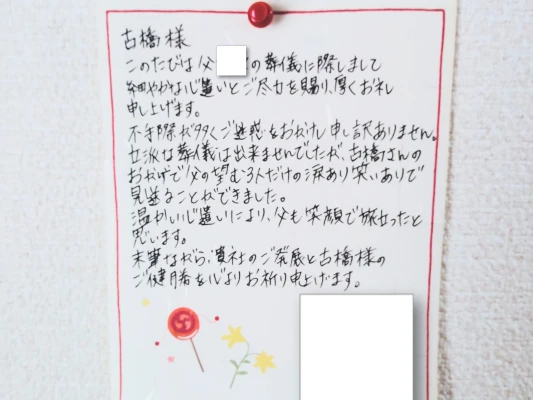 古橋様
このたびは父の葬儀に際しまして
細やかな心遣いとご尽力を賜り、厚くお礼
申し上げます。
不手際が多くご迷惑をおかけし申し訳ありません。
立派な葬儀は出来ませんでしたが、古橋さんの
おかげで父の望む3人だけの涙あり笑いありで
見送ることができました。
温かい心遣いにより、父も笑顔で旅立ったと
思います。
末筆ながら、貴社のご発展と古橋様の
ご健勝を心よりお祈り申上げます。